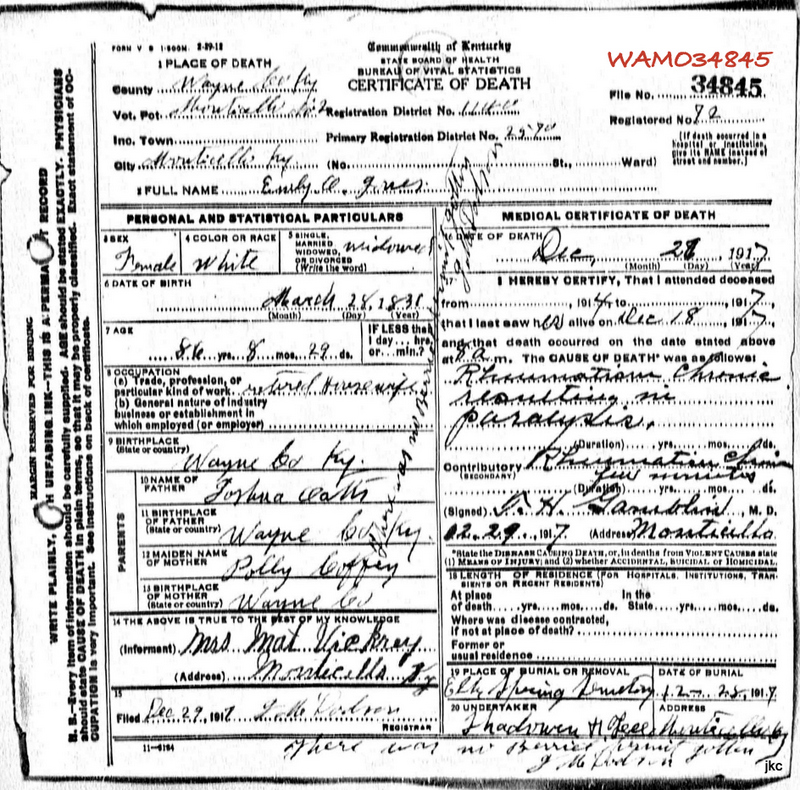 FORM V S 1-500M. 2-29-12
Commonwealth of Kentucky
STATE BOARD OF HEALTH
BUREAU OF VITAL STATISTICS
CERTIFICATE OF DEATH
WAM034845
File No. 34845
Registered No. 72
[If death occurred in a hospital or institution, give its NAME instead of street and number.]
1 PLACE OF DEATH
County Wayne Co Ky
Vot. Pct. Monticello
Registration District No. 1140
Inc. Town
Primary Registration District No. 2590
City Monticello Ky (No. St., Ward)
2 FULL NAME Emily
PERSONAL AND STATISTICAL PARTICULARS
3 SEX Female
4 COLOR OR RACE White
5 SINGLE, MARRIED WIDOWED, OR DIVORCED (Write the word) widowed
6 DATE OF BIRTH
March 28, 1831
(Month) (Day) (Year)
7 AGE
86 yrs. 8 mos. 29 ds.
IF LESS than 1 day... hrs. or... min.?
8 OCCUPATION
(a) Trade, profession, or particular kind of work retired Housewife
(b) General nature of industry business or establishment in which employed (or employer)
9 BIRTHPLACE
(State or country)
Wayne Co Ky.
PARENTS
10 NAME OF FATHER Joshua Oatts
11 BIRTHPLACE OF FATHER (State or country) Wayne Co Ky.
12 MAIDEN NAME OF MOTHER Polly Coffey
13 BIRTHPLACE OF MOTHER (State or country) Wayne Co
14 THE ABOVE IS TRUE TO THE BEST OF MY KNOWLEDGE
(Informant) Mrs Mat Vickrey
(Address) Monticello Ky
15
Filed Dec 29, 1917 J. M Dodson
REGISTRAR
11-5164
MEDICAL CERTIFICATE OF DEATH
16 DATE OF DEATH
Dec, 1917
(Month) (Day) (Year)
I HEREBY CERTIFY, That I attended deceased
from , 1914 to , 1917,
that I last saw her alive on Dec 18, 1917
and that death occurred on the date stated above
at m. The CAUSE OF DEATH* was as follows:
Rheumatism Chronic
resulting in
paralysis.
(Duration) yrs. mos. ds.
Contributory Rheumatism
(SECONDARY) few minutes
(Duration) yrs. mos. ds.
(Signed) Gamblin, M. D.
12-29, 1917 (Address) Monticello
*State the DISEASE CAUSING DEATH, or, in deaths from VIOLENT CAUSES state
(1) MEANS OF INJURY; and (2) whether ACCIDENTAL, SUICIDAL or HOMICIDAL.
18 LENGTH OF RESIDENCE (FOR HOSPITALS, INSTITUTIONS, TRANSIENTS OR RECENT RESIDENTS)
At place of death yrs. mos. ds. In the State yrs. mos. ds.
Where was disease contracted,
if not at place of death?
Former or
usual residence
19 PLACE OF BURIAL OR REMOVAL
Elk Spring Cemetery
DATE OF BURIAL
12-28, 1917
20 UNDERTAKER
ADDRESS
Monticello Ky
There was no permit gotten
J M Dodson
MARGIN RESERVED FOR BINDING
WRITE PLAINLY, WITH UNFADING INK—THIS IS A PERMANENT RECORD
N. B.—Every item of information should be carefully supplied. AGE should be stated EXACTLY. PHYSICIANS
should state CAUSE OF DEATH in plain terms, so that it may be properly classified. Exact statement of OC-
CUPATION is very important. See instructions on back of certificate.
jkc